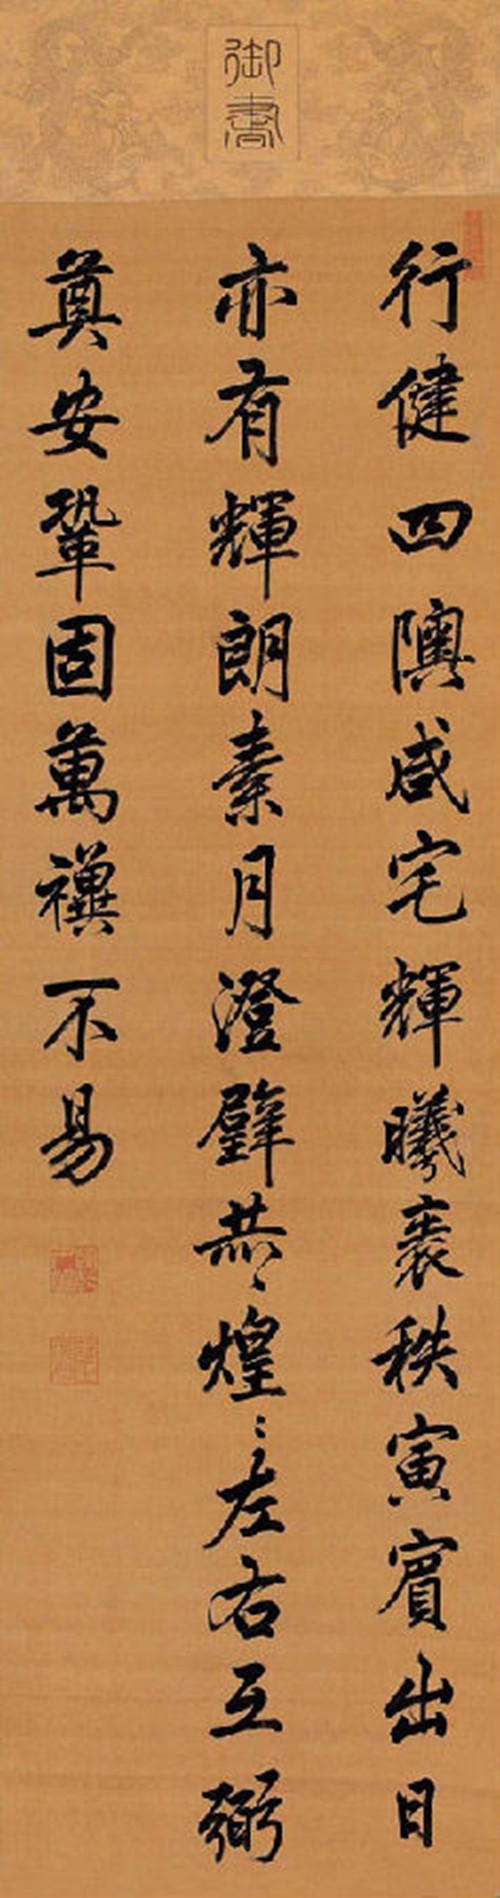 御書
行健四隩咸宅輝曦秩寅賓出日
亦有輝朗素月澄璧恭煌〻左右互弼
奠安鞏固萬禩不易